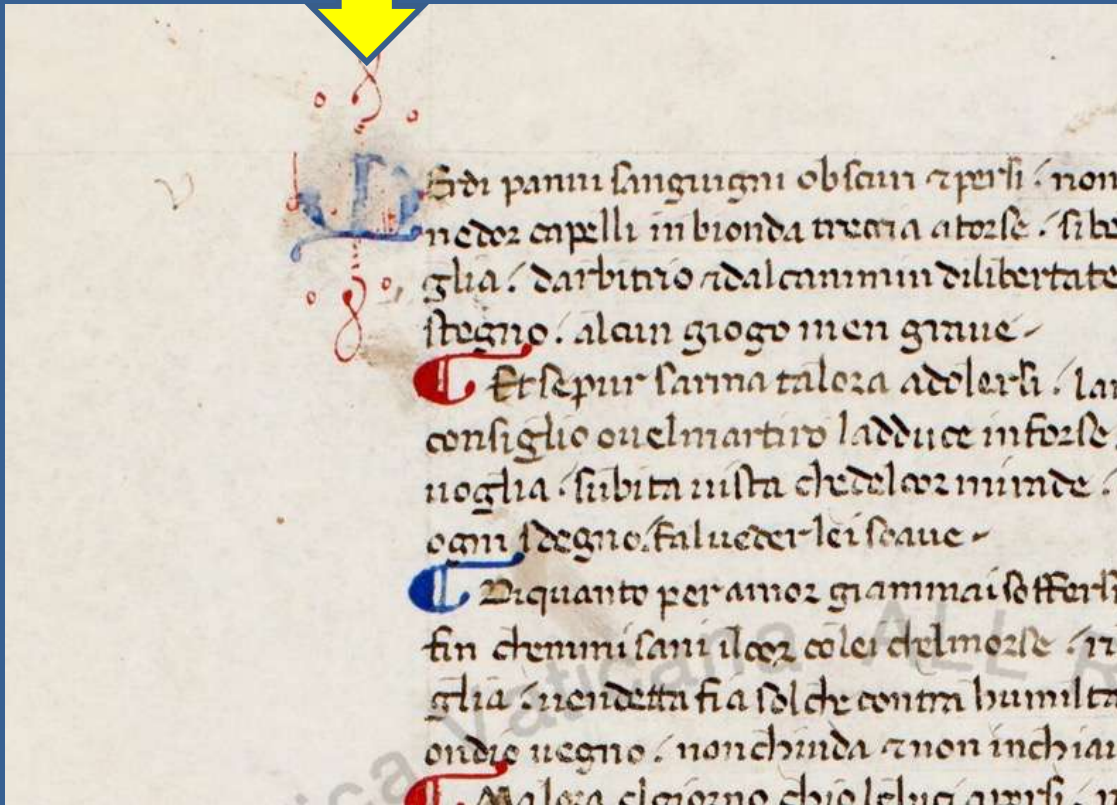 VErdi panni sanguigni obscuri ⁊persi / non
nedor capelli in bionda treccia atorse / sibe
glia / darbitrio ⁊dalcammin dilibertate
stegno / alcun giogo men graue
¶ Et sepur sarma talora adolersi / lan
consiglio ouelmartiro ladduce inforse /
uoglia / subita uista chedelcor mirade /
ogni sdegno / falueder lei soaue
¶ Diquanto per amor giammai soffersi
fin chemmi sani ilcor colei chelmorse /
glia / uendetta fia solche contra humilta
ondio uegno / nonchiuda ⁊non inchiau
¶ Malora elgiorno chio leluci apersi /
ica Vaticana ALL R